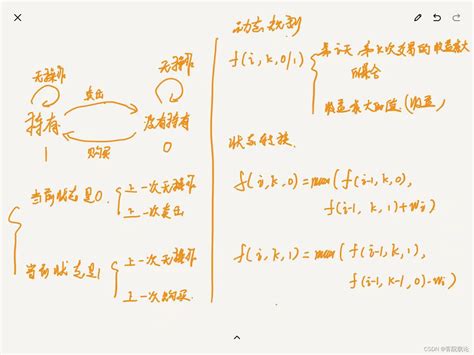 无操作
无操作
卖出
持有
没有持有
购买
1
0
当前状态是0
上一次无操作
上一次卖出
当前状态是1
上一次无操作
上一次购买
动态规划
f(i,k,0/1)
第i天,第k次交易的收益最大
的集合
收益最大的值(收益)
状态转换
f(i,k,0)=max(f(i-1,k,0),
f(i-1,k,1)+wi)
f(i,k,1)=max(f(i-1,k,1),
f(i-1,k-1,0)-wi)